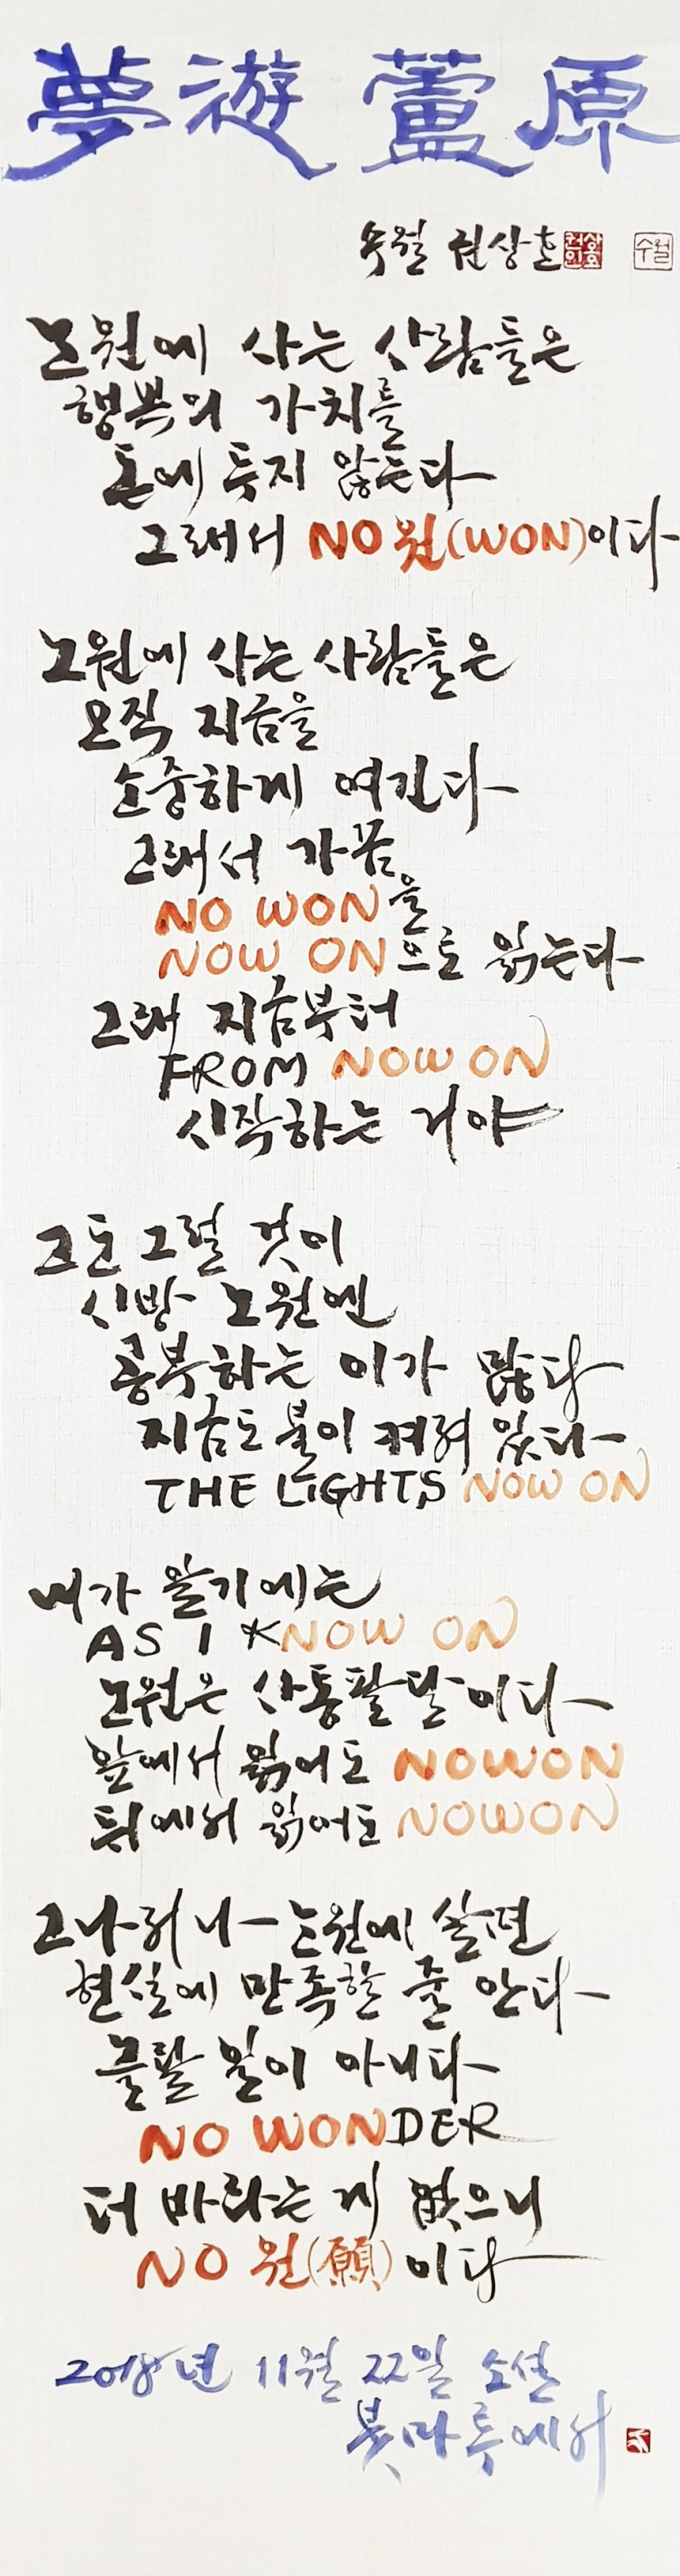 夢遊 蘆原
수월 권상호
수월
노원에 사는 사람들은
행복의 가치를
돈에 두지 않는다
그래서 NO원(WON)이다
노원에 사는 사람들은
오직 지금을
소중하게 여긴다
그래서 가끔
NO WON을
NOW ON으로 읽는다
그래 지금부터
FROM NOW ON
시작하는 거야
그도 그럴 것이
시방 노원엔
공부하는 이가 많다
지금도 불이 켜져 있다
THE LIGHTS NOW ON
내가 알기에는
AS I KNOW ON
노원은 사통팔달이다
앞에서 읽어도 NOWON
뒤에서 읽어도 NOWON
그나저나 노원에 살면
현실에 만족할 줄 안다
놀랄 일이 아니다
NO WONDER
더 바라는 게 없으니
NO 원(願)이다
2018년 11월 22일 소설
붓마루에서